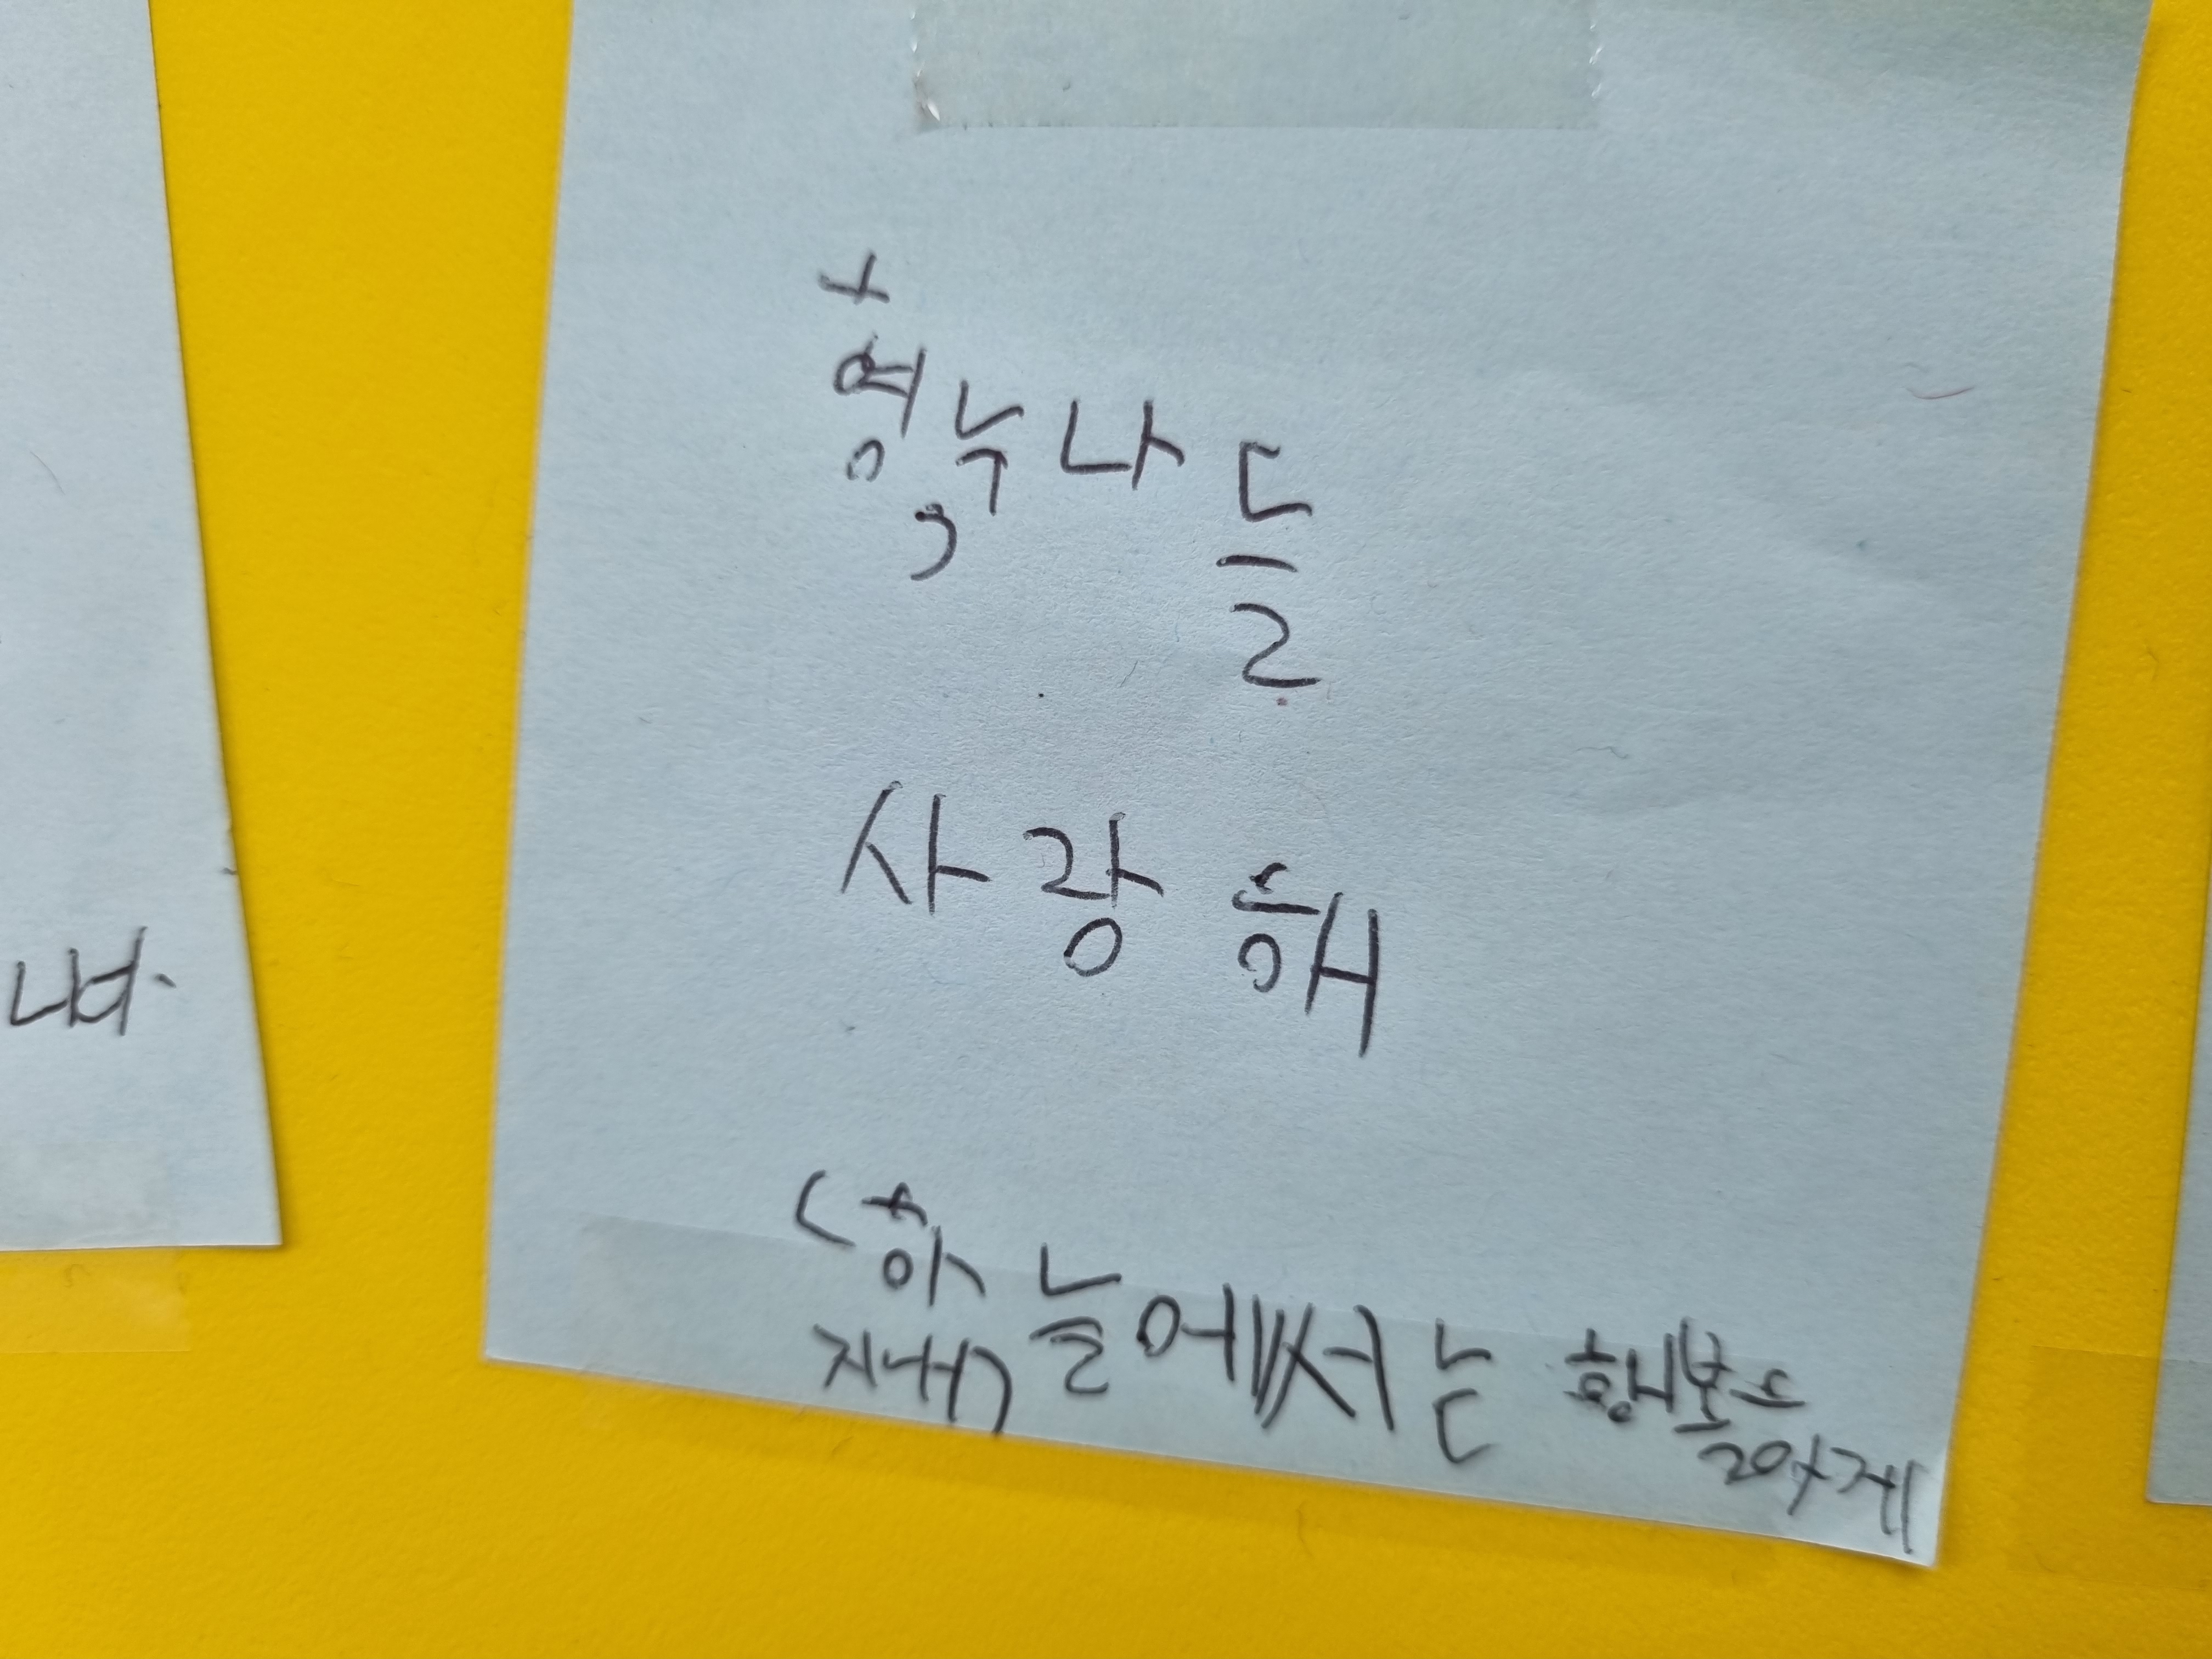 형, 누나들
사랑해
(하늘에서는 행복스럽게
지내)